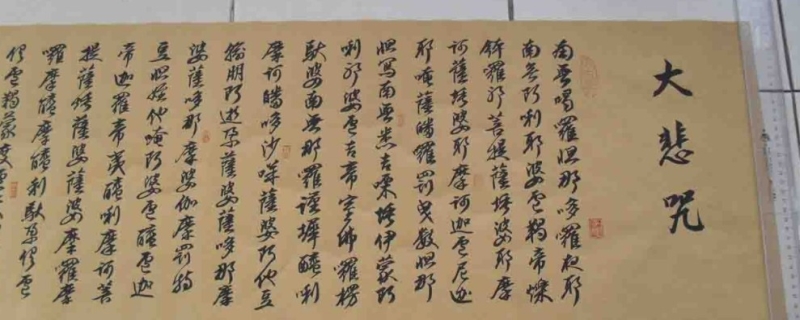 大悲咒
南无喝囉怛那哆囉夜耶
南无阿唎耶婆盧羯帝爍
鉢囉耶菩提薩埵婆耶摩
訶薩埵婆耶摩訶迦盧尼迦
耶唵薩皤囉罰曳數怛那
怛寫南无悉吉慄埵伊蒙阿
唎耶婆盧吉帝室佛囉楞
馱婆南无那囉謹墀醯唎
摩訶皤哆沙咩薩婆阿他豆
輸朋阿逝孕薩婆薩哆那摩
婆薩哆那摩婆伽摩罰特
豆怛姪他唵阿婆盧醯盧迦
帝迦羅帝夷醯唎摩訶菩
提薩埵薩婆薩婆摩囉摩
囉摩醯摩醯唎馱孕俱盧
俱盧羯蒙度盧